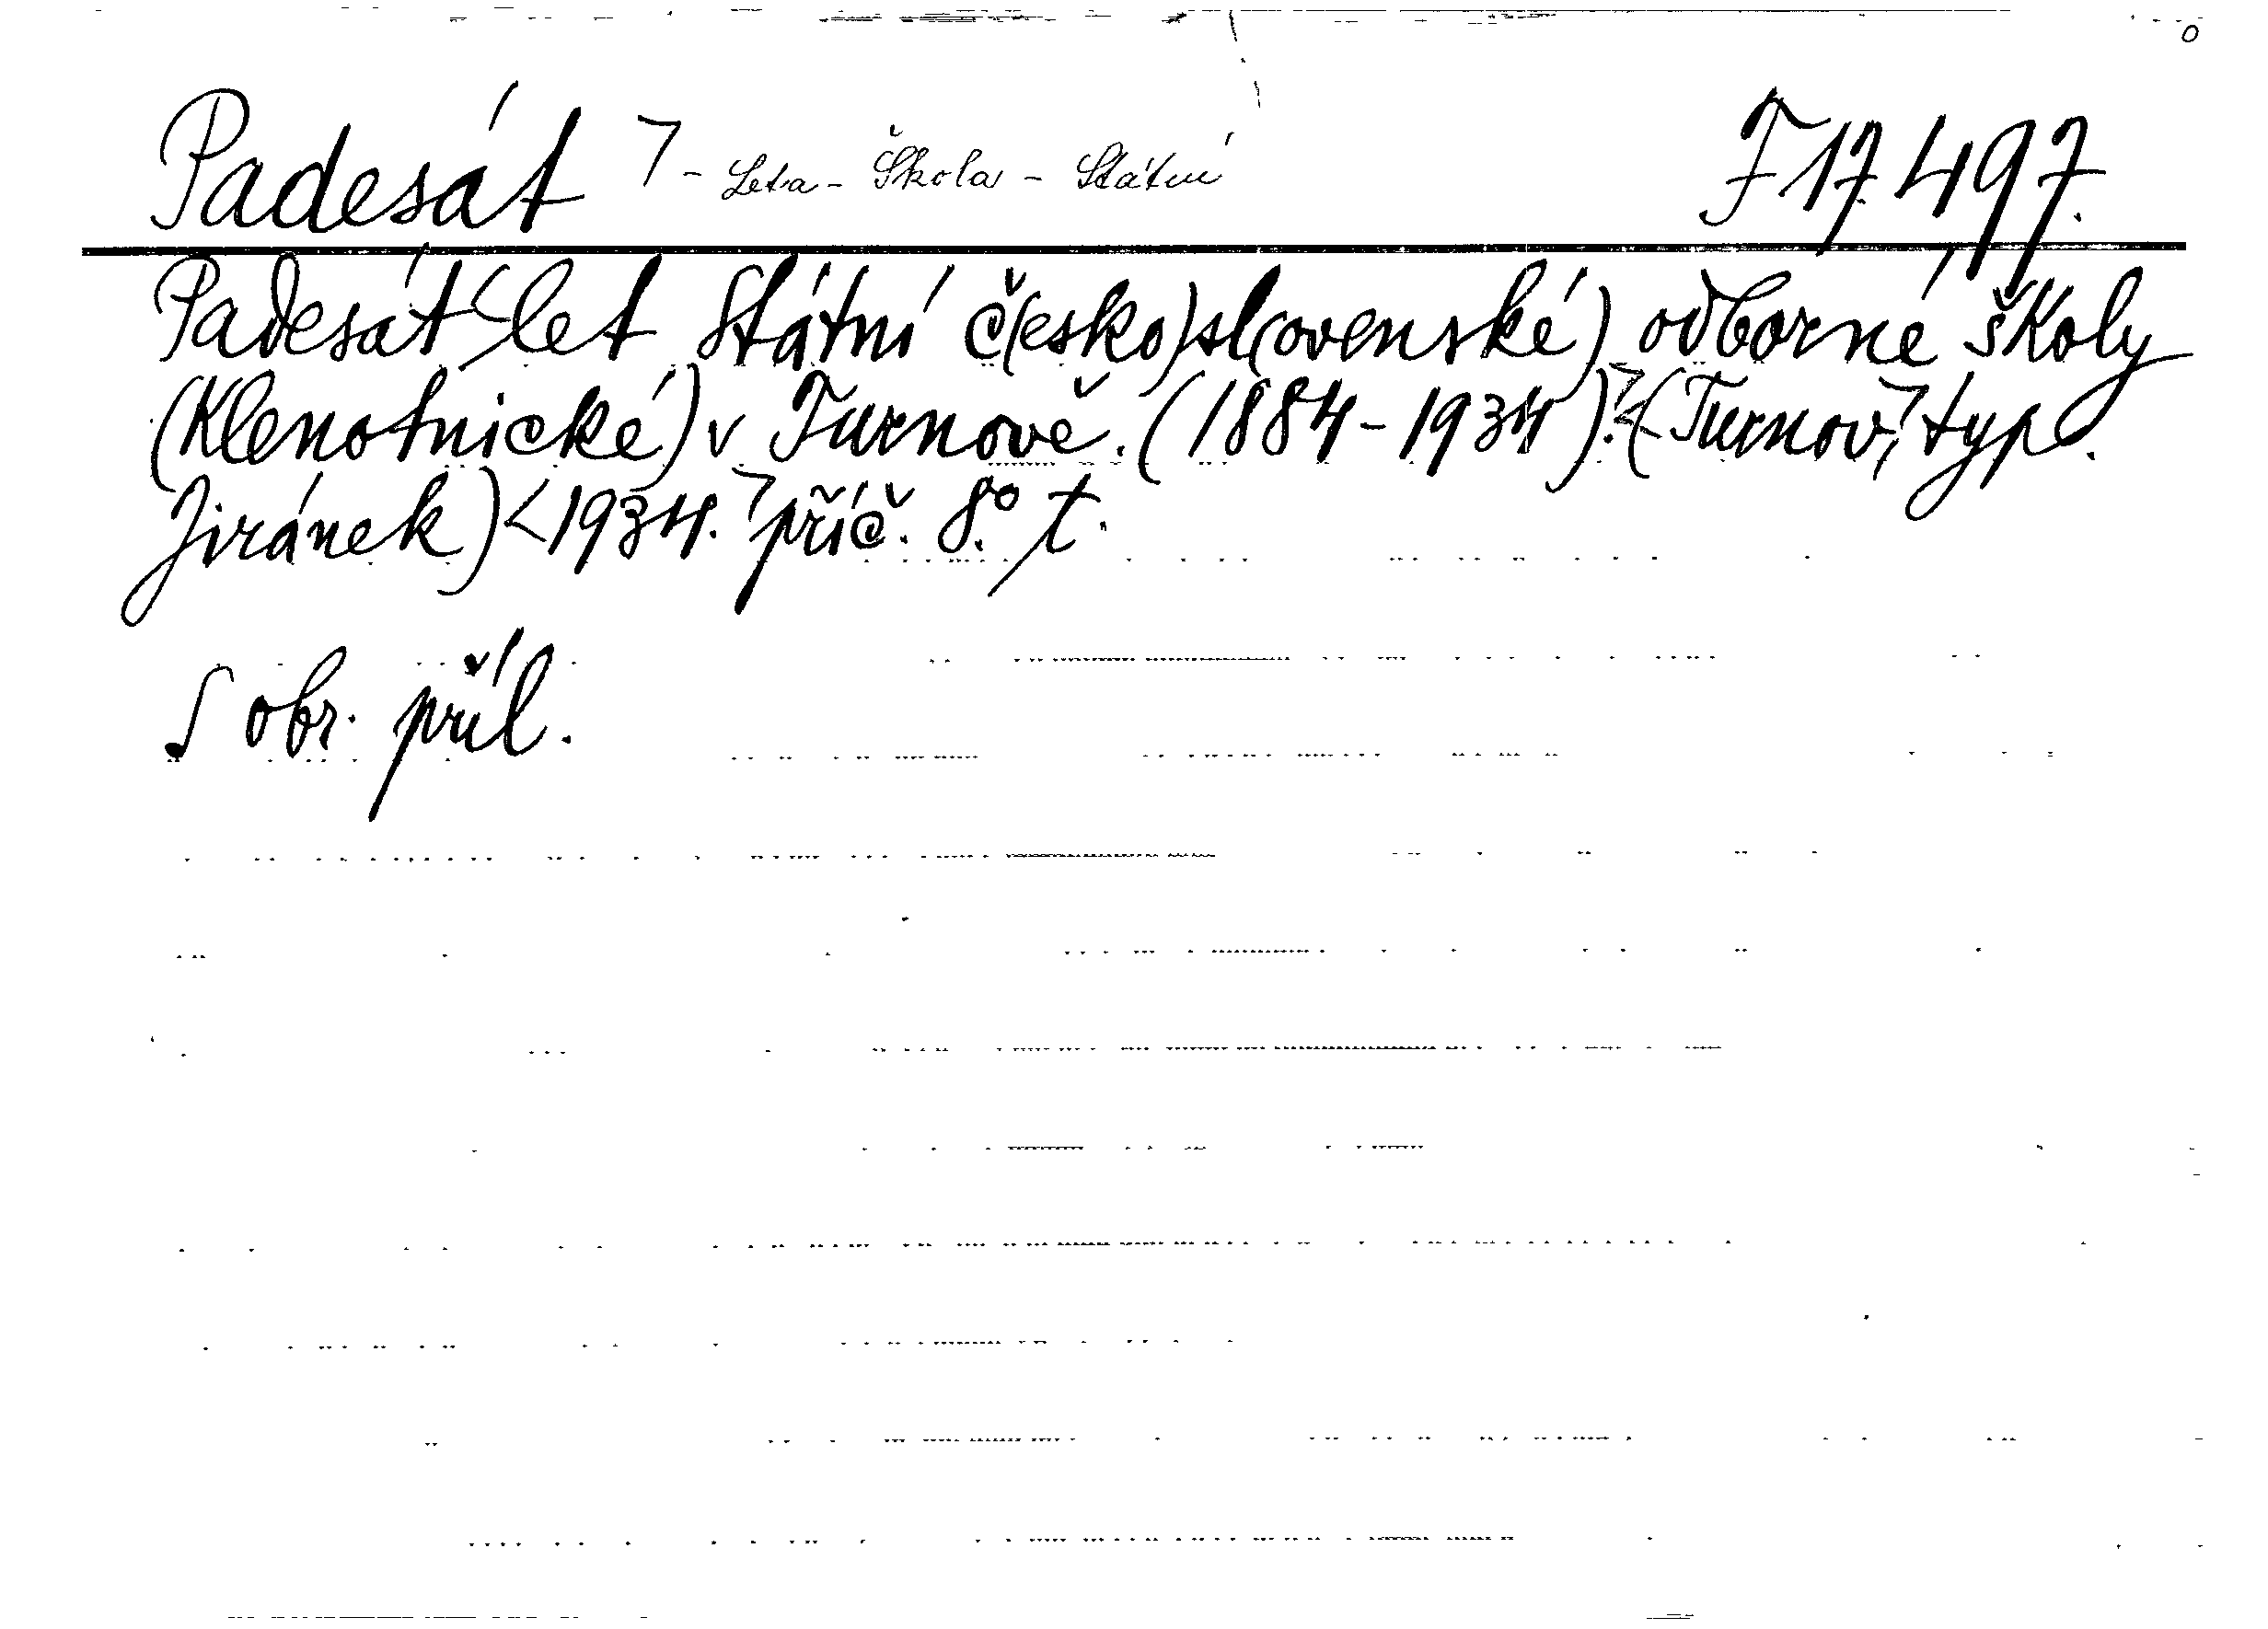 Padesát - Leta - Škola - Státní F 17.497.
Padesát let státní č(esko)sl(ovenské) odborné školy
(klenotnické) v Turnově. (1884-1934). (Turnov, typ.
Jiránek) 1934. příč. 8.° t.
S obr. příl.